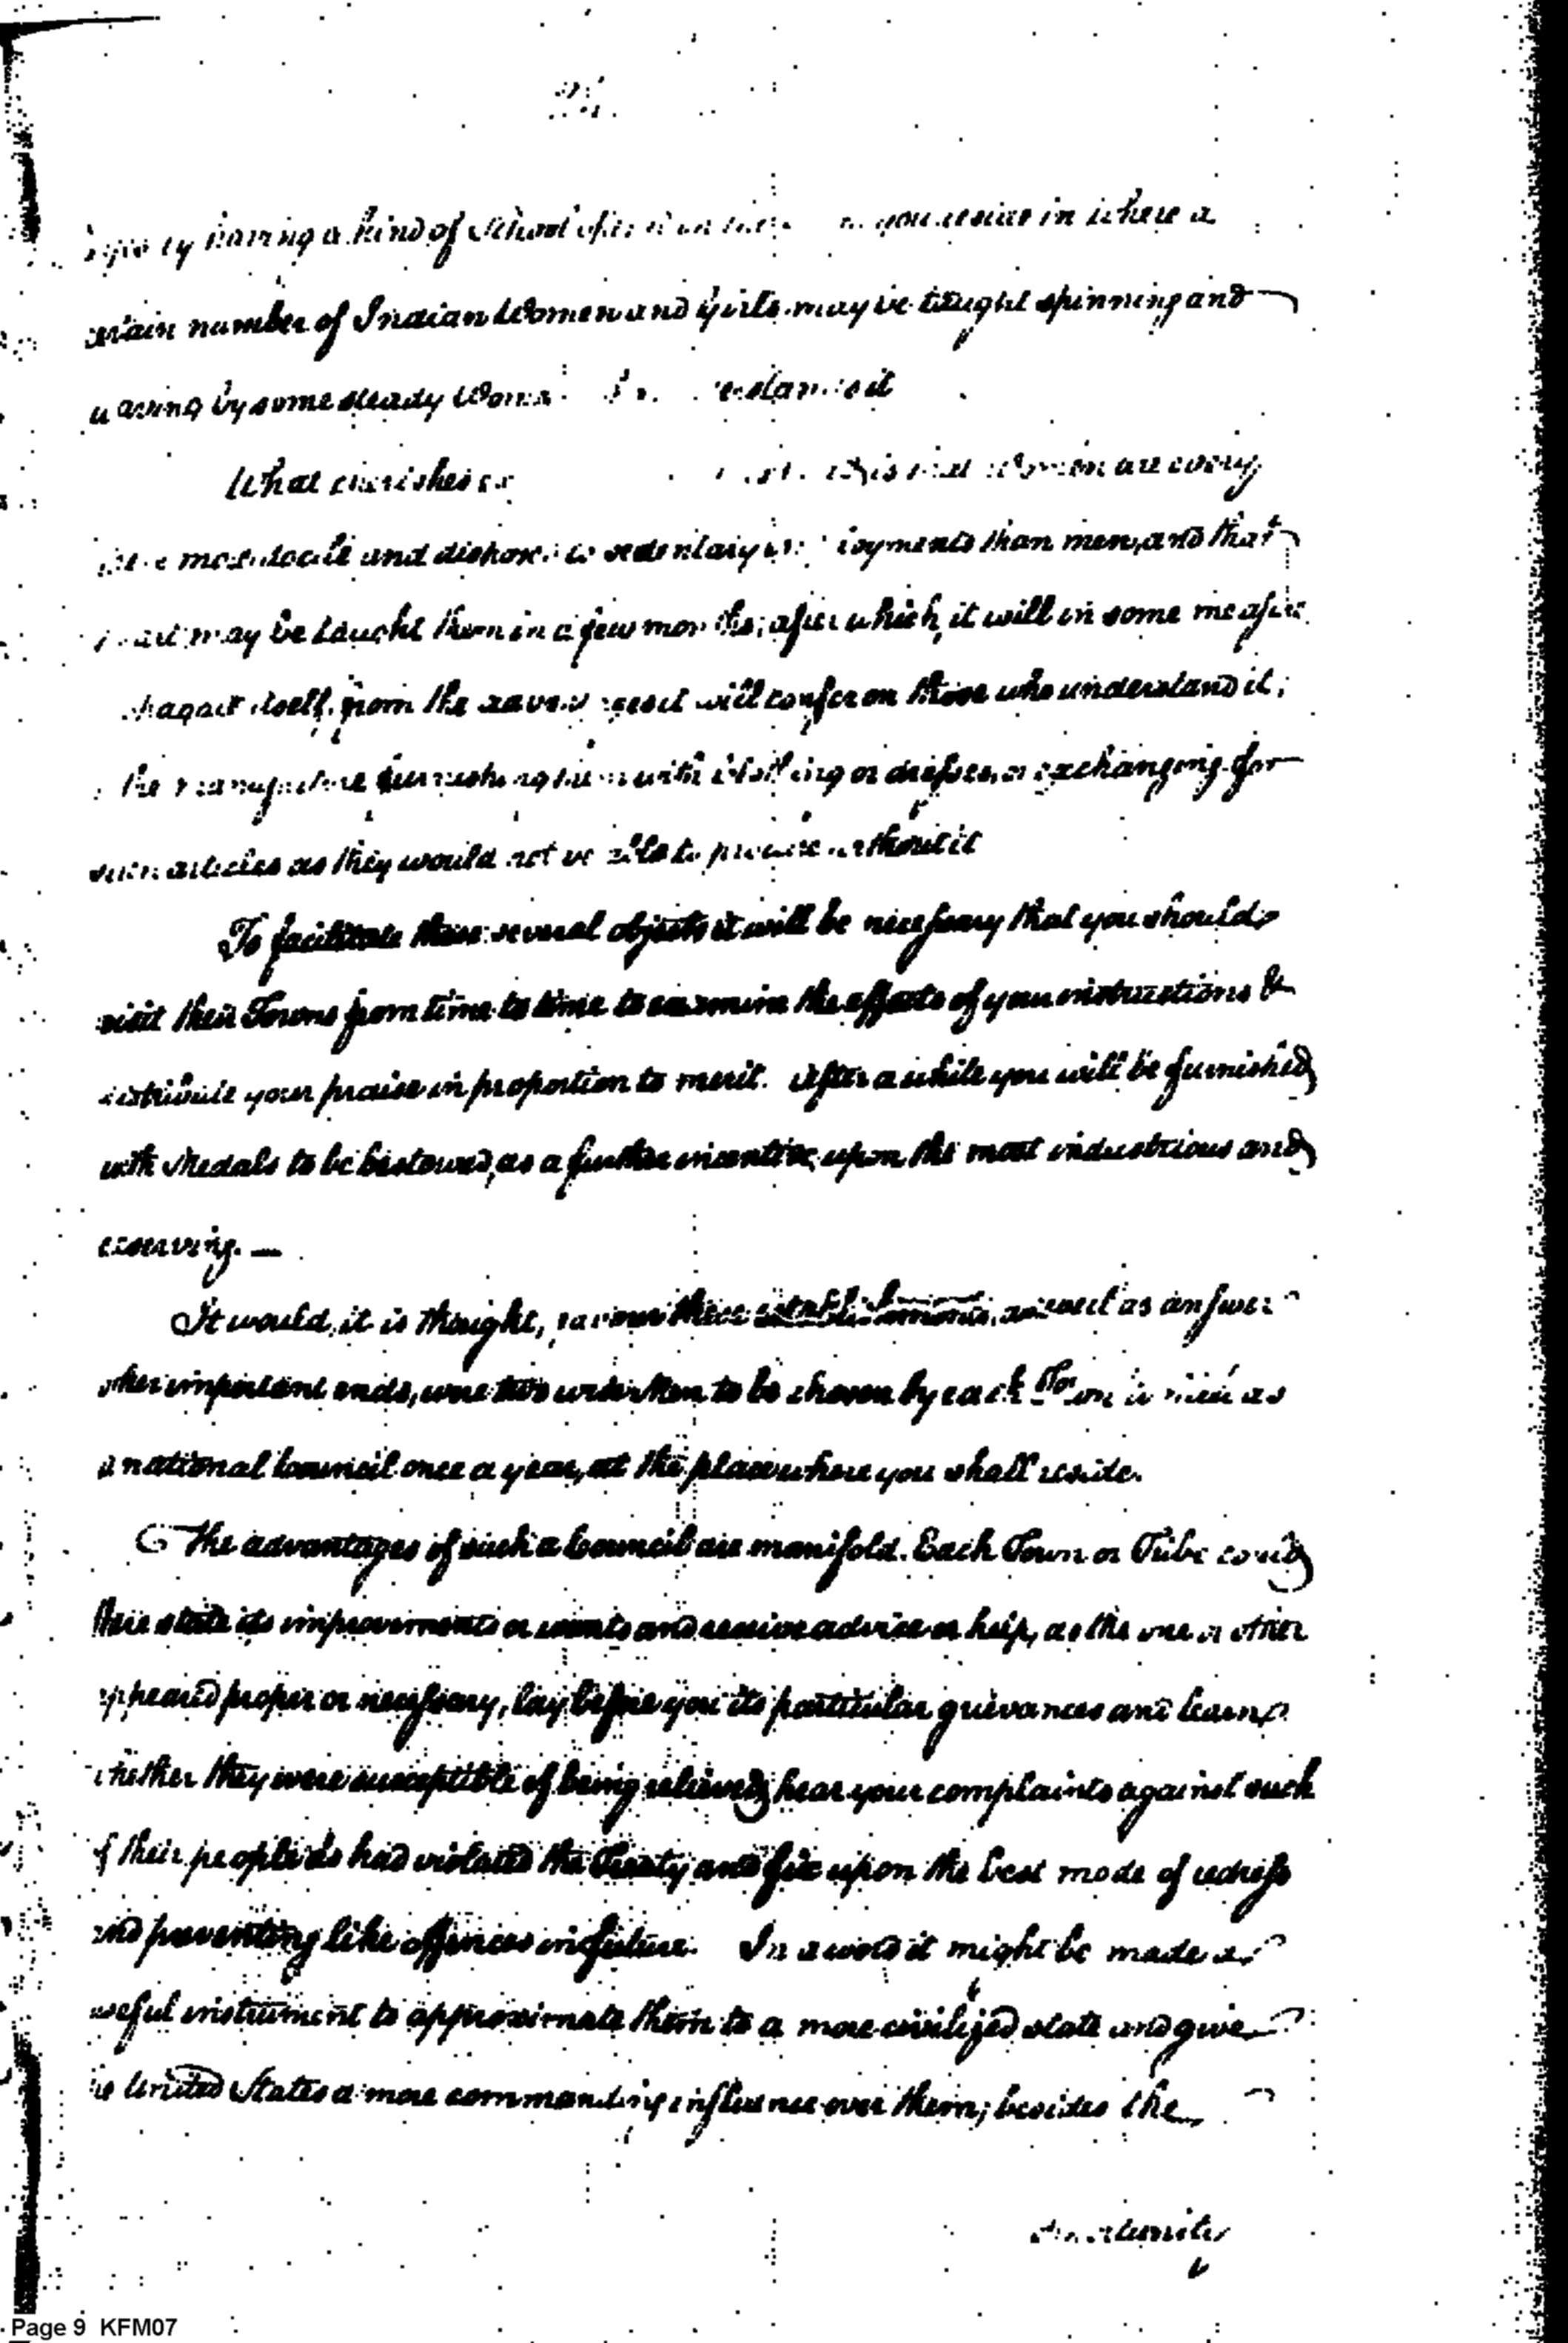 having a kind of School in where a
number of Indian Women and Girls may be taught spinning and
by some steady
What cherishes Women are every
most docile and to sedentary than men, and that
may be taught them in a few months; after which, it will in some measure
itself, from the it will confer on those who understand it;
the with or dresses, or exchanging for
such articles as they would not be able to procure without it
To facilitate these several objects it will be necessary that you should
visit their Towns from time to time to examine the effects of your instructions &
distribute your praise in proportion to merit. After a while you will be furnished
with Medals to be bestowed, as a further incentive, upon the most industrious and
deserving. —
It would, it is thought, favour these establishments, as well as answer
other important ends, were two wiser Men to be chosen by each Town to meet as
a national Council once a year, at the place where you shall reside.
The advantages of such a Council are manifold. Each Town or Tribe could
there state its improvements or wants and receive advice or help, as the one or other
appeared proper or necessary, lay before you its particular grievances and learn
whether they were susceptible of being relieved, hear your complaints against such
of their people as had violated the Treaty and fix upon the best mode of redress
and preventing like offences in future. In a word it might be made a
useful instrument to approximate them to a more civilized state and give
United States a more commanding influence over them; besides the
Page 9 KFM07